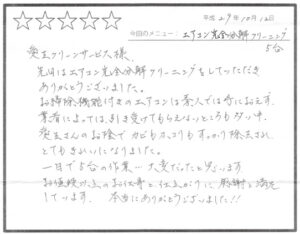 平成29年10月12日
今回のメニュー: エアコン完全分解クリーニング
5台
クリーンサービス様
先日はエアコン完全分解クリーニングをしていただき
ありがとうございました。
お掃除機能付きのエアコンは素人では手におえず、
業者によっては引き受けてもらえないところも多い中、
さんのお陰でカビもホコリもすっかり除去され
とてもきれいになりました。
一日で5台の作業…大変だったと思います
お値段以上のお仕事と仕上がりに感謝と満足
しています。本当にありがとうございました!!